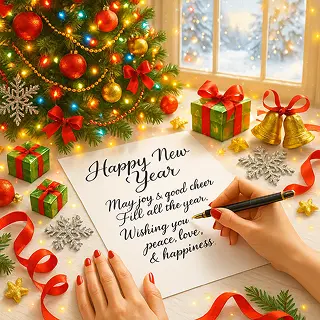 Happy New
Year
May joy & good cheer
Fill all the year.
Wishing you
peace, love,
& happiness.